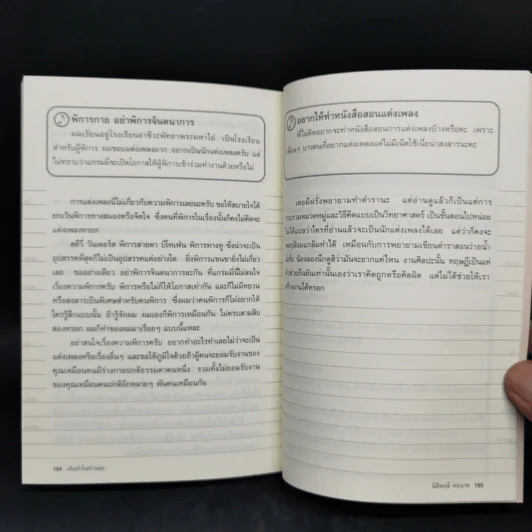 พิการกาย อย่าพิการจินตนาการ
ผมเรียนอยู่โรงเรียนอาชีวะพัทยาพระมหาไถ่ เป็นโรงเรียน
สำหรับผู้พิการ ผมชอบแต่งเพลงมาก อยากเป็นนักแต่งเพลงครับ แต่
ไม่ทราบว่าแกรมมี่จะเปิดโอกาสให้ผู้พิการเข้าร่วมทำงานด้วยหรือไม่
การแต่งเพลงนี่ไม่เกี่ยวกับความพิการเลยนะครับ ขอให้สบายใจได้
ยกเว้นพิการทางสมองหรือจิตใจ ซึ่งคนที่พิการในเรื่องนั้นก็คงไม่คิดจะ
แต่งเพลงหรอก
สตีวี่ วันเดอร์ส พิการสายตา บีโทเฟ่น พิการทางหู ซึ่งน่าจะเป็น
อุปสรรคที่สุดก็ไม่เป็นอุปสรรคแต่อย่างใด ยิ่งพิการแขนขายิ่งไม่เกี่ยว
เลย ขออย่างเดียว อย่าพิการจินตนาการละกัน ที่แกรมมี่นี่ไม่สนใจ
เรื่องความพิการครับ พิการหรือไม่ก็ให้โอกาสเท่ากัน และก็ไม่มีทวน
หรือสงสารเป็นพิเศษสำหรับคนพิการ ซึ่งผมว่าคนพิการก็ไม่อยากให้
ใครรู้สึกแบบนั้น ถ้ารู้จักผม ผมเองก็พิการเหมือนกัน ไม่ครบสามสิบ
สองหรอก ผมก็ทำของผมมาเรื่อยๆ แบบนี้แหละ
อย่าสนใจเรื่องความพิการครับ อยากทำอะไรทำเลยไม่ว่าจะเป็น
แต่งเพลงหรือเรื่องอื่นๆ และขอให้ภูมิใจด้วยถ้าผู้คนจะยอมรับงานของ
คุณเหมือนคนมีร่างกายปกติธรรมดาคนหนึ่ง รวมทั้งไม่ยอมรับงาน
ของคุณเหมือนคนปกติอีกหลายๆ พันคนเหมือนกัน
154
อยากให้ทำหนังสือสอนแต่งเพลง
พี่ไม่คิดอยากจะทำหนังสือสอนการแต่งเพลงบ้างหรือคะ เพราะ
เพื่อนๆ บางคนที่อยากแต่งเพลงแต่ไม่มีเน็ตใช้เนี่ยน่าสงสารนะคะ
เคยมีฝรั่งพยายามทำตำรานะ แต่อ่านดูแล้วก็เป็นแค่การ
รวบรวมหมวดหมู่และวิธีคิดแบบเป็นวิทยาศาสตร์ เป็นขั้นตอนไปหน่อย
ไม่ได้แปลว่าใครที่อ่านแล้วจะเป็นนักแต่งเพลงได้เลย แต่ว่าก็คงจะ
พอกล้อมแกล้มทำได้ เหมือนกับการพยายามเขียนตำราสอนว่ายน้ำ
แหละ น้องลองนึกดูสิว่ามันจะยากแค่ไหน งานศิลปะนั้น ทฤษฎีเป็นแค่
ตัวช่วยยืนยันเท่านั้นเองว่าเราคิดถูกหรือคิดผิด แต่ไม่ได้ช่วยให้เรา
ทำงานได้หรอก
155